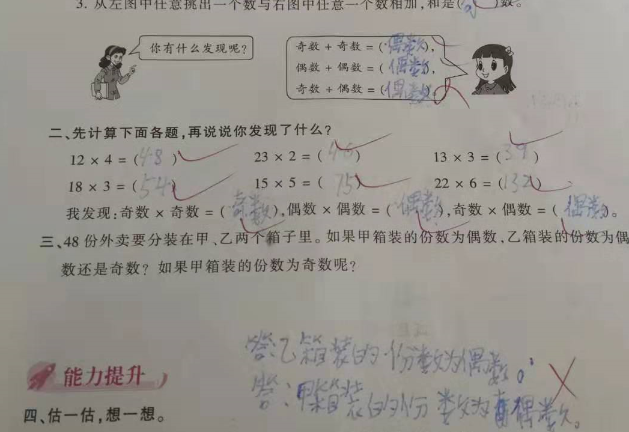 3. 从左图中任意挑出一个数与右图中任意一个数相加,和是( )数。
你有什么发现呢?
奇数 + 奇数 = (偶数),
偶数 + 偶数 = (偶数),
奇数 + 偶数 = (偶数)。
二、先计算下面各题,再说说你发现了什么?
12 × 4 = (48) 23 × 2 = (46) 13 × 3 = (39)
18 × 3 = (54) 15 × 5 = (75) 22 × 6 = (132)
我发现:奇数 × 奇数 = (奇数),偶数 × 偶数 = (偶数),奇数 × 偶数 = (偶数)。
三、48 份外卖要分装在甲、乙两个箱子里。如果甲箱装的份数为偶数,乙箱装的份数为偶
数还是奇数? 如果甲箱装的份数为奇数呢?
答:乙箱装的份数为偶数。
答:甲箱装的份数为偶数。
能力提升
四、估一估,想一想。